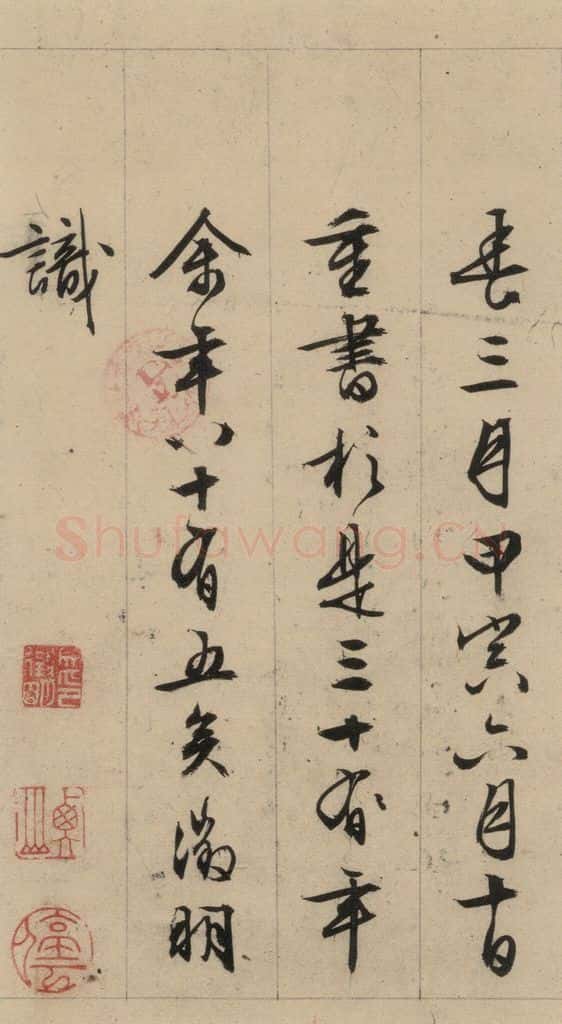 春三月甲寅六月十日
重書於是三十有年
余年八十有五矣徵明
識
衡山
停雲
Shufawang.cn